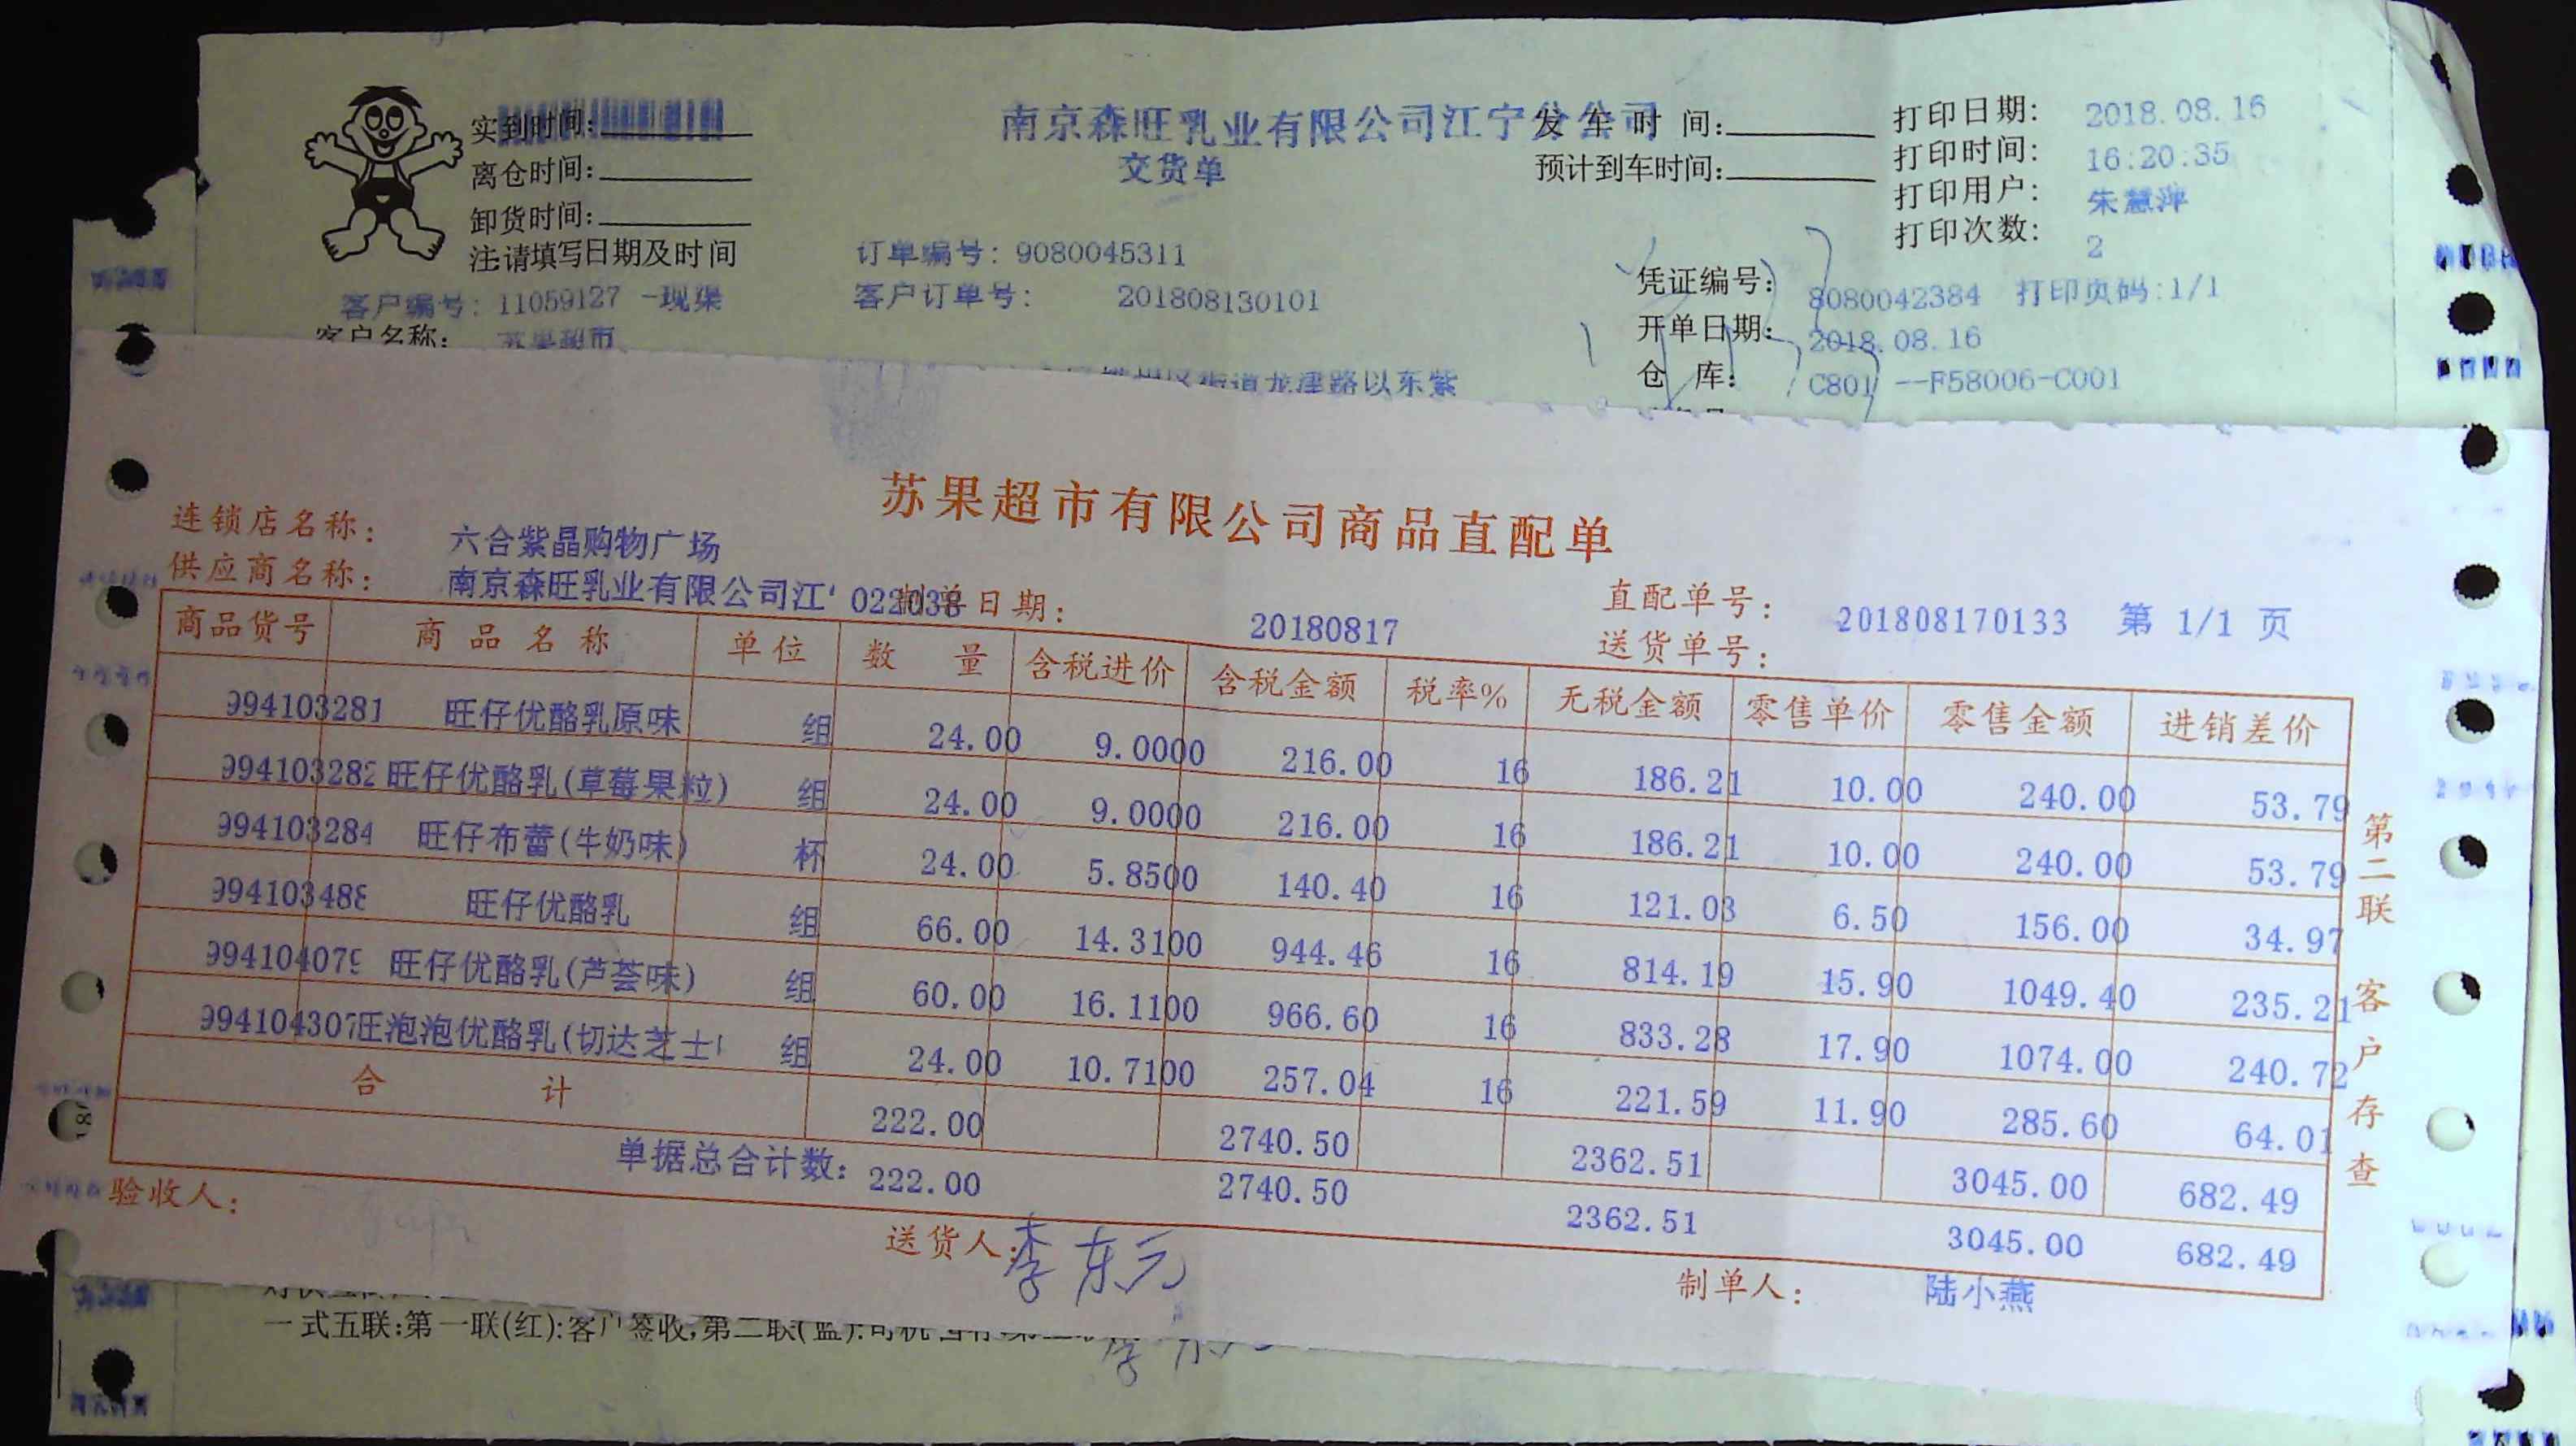 实到时间:
南京森旺乳业有限公司江宁分公司
发车时间:
打印日期: 2018.08.16
离仓时间:
交货单
预计到车时间:
打印时间: 16:20:35
卸货时间:
打印用户: 朱慧萍
注:请填写日期及时间
订单编号: 9080045311
打印次数: 2
客户编号: 11059127 -现渠
客户订单号: 201808130101
凭证编号: 8080042384 打印页码:1/1
客户名称: 苏果超市
开单日期: 2018.08.16
街道龙津路以东紫
仓 库: C801 --F58006-C001
苏果超市有限公司商品直配单
连锁店名称: 六合紫晶购物广场
供应商名称: 南京森旺乳业有限公司江' 022038
制单日期: 20180817
直配单号: 201808170133 第 1/1 页
送货单号:
商品货号 商品名称 单位 数量 含税进价 含税金额 税率% 无税金额 零售单价 零售金额 进销差价
994103281 旺仔优酪乳原味 组 24.00 9.0000 216.00 16 186.21 10.00 240.00 53.79
994103282 旺仔优酪乳(草莓果粒) 组 24.00 9.0000 216.00 16 186.21 10.00 240.00 53.79
994103284 旺仔布蕾(牛奶味) 杯 24.00 5.8500 140.40 16 121.03 6.50 156.00 34.97
99410348 旺仔优酪乳 组 66.00 14.3100 944.46 16 814.19 15.90 1049.40 235.21
99410407 旺仔优酪乳(芦荟味) 组 60.00 16.1100 966.60 16 833.28 17.90 1074.00 240.72
994104307 旺泡泡优酪乳(切达芝士 组 24.00 10.7100 257.04 16 221.59 11.90 285.60 64.01
合计 222.00 2740.50 2362.51 3045.00 682.49
单据总合计数: 222.00 2740.50 2362.51 3045.00 682.49
验收人:
送货人: 李东元
制单人: 陆小燕
第二联 客户存查
一式五联:第一联(红):客户签收,第二联(蓝):司机